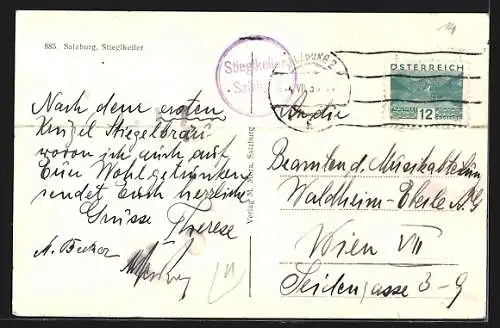 885. Salzburg, Stieglkeller
Stieglkeller
Salzburg
ÖSTERREICH
12
Nach dem ersten
Krügel Stieglbräu
wovon ich auch auf
Euer Wohl getrunken
sendet Euch herzliche
Grüsse Therese
An die
Beamten d. Musikabteilung
Waldheim-Eberle A.G
Wien VII
Seidengasse 3-9
Verlag M. Salzburg